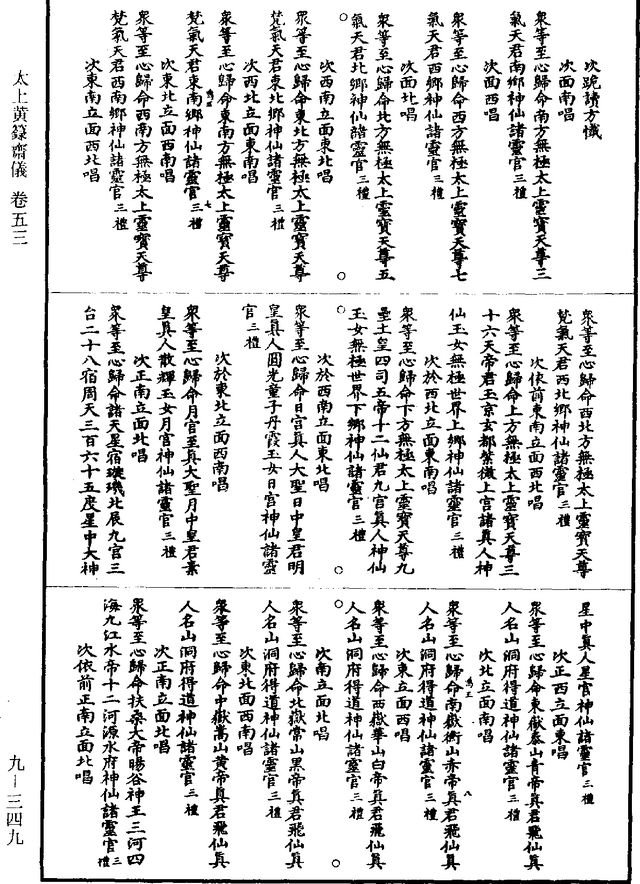 太上黃籙齋儀 卷五三
九－三四九
次跪讀方懺
次面南唱
衆等至心歸命南方無極太上靈寶天尊三
氣天君南鄉神仙諸靈官 三禮
次面西唱
衆等至心歸命西方無極太上靈寶天尊七
氣天君西鄉神仙諸靈官 三禮
次面北唱
衆等至心歸命北方無極太上靈寶天尊五
氣天君北鄉神仙諸靈官 三禮
次西南立面東北唱
衆等至心歸命東北方無極太上靈寶天尊
梵氣天君東北鄉神仙諸靈官 三禮
次西北立面東南唱
衆等至心歸命東南方無極太上靈寶天尊
梵氣天君東南鄉神仙諸靈官 三禮
七
次東北立面西南唱
衆等至心歸命西南方無極太上靈寶天尊
梵氣天君西南鄉神仙諸靈官 三禮
次東南立面西北唱
衆等至心歸命西北方無極太上靈寶天尊
梵氣天君西北鄉神仙諸靈官 三禮
次依前東南立面西北唱
衆等至心歸命上方無極太上靈寶天尊三
十六天帝君玉京玄都紫微上宮諸真人神
仙玉女無極世界上鄉神仙諸靈官 三禮
次於西北立面東南唱
衆等至心歸命下方無極太上靈寶天尊九
壘土皇四司五帝十二仙君九宮真人神仙
玉女無極世界下鄉神仙諸靈官 三禮
次於西南立面東北唱
衆等至心歸命日宮真人大聖日中皇君明
皇真人圓光童子丹霞玉女日宮神仙諸靈
官 三禮
次於東北立面西南唱
衆等至心歸命月宮至真大聖月中皇君素
皇真人散輝玉女月宮神仙諸靈官 三禮
次正南立面北唱
衆等至心歸命諸天星宿璇璣北辰九宮三
台二十八宿周天三百六十五度星中大神
星中真人星宮神仙諸靈官 三禮
次正西立面東唱
衆等至心歸命東嶽泰山青帝真君飛仙真
人名山洞府得道神仙諸靈官 三禮
次北立面南唱
衆等至心歸命南嶽衡山赤帝真君飛仙真
八
人名山洞府得道神仙諸靈官 三禮
次東立面西唱
衆等至心歸命西嶽華山白帝真君飛仙真
人名山洞府得道神仙諸靈官 三禮
次南立面北唱
衆等至心歸命北嶽常山黑帝真君飛仙真
人名山洞府得道神仙諸靈官 三禮
次東北面西南唱
衆等至心歸命中嶽嵩山黃帝真君飛仙真
人名山洞府得道神仙諸靈官 三禮
次正南立面北唱
衆等至心歸命扶桑大帝暘谷神王三河四
海九江水帝十二河源水府神仙諸靈官 三禮
次依前正南立面北唱